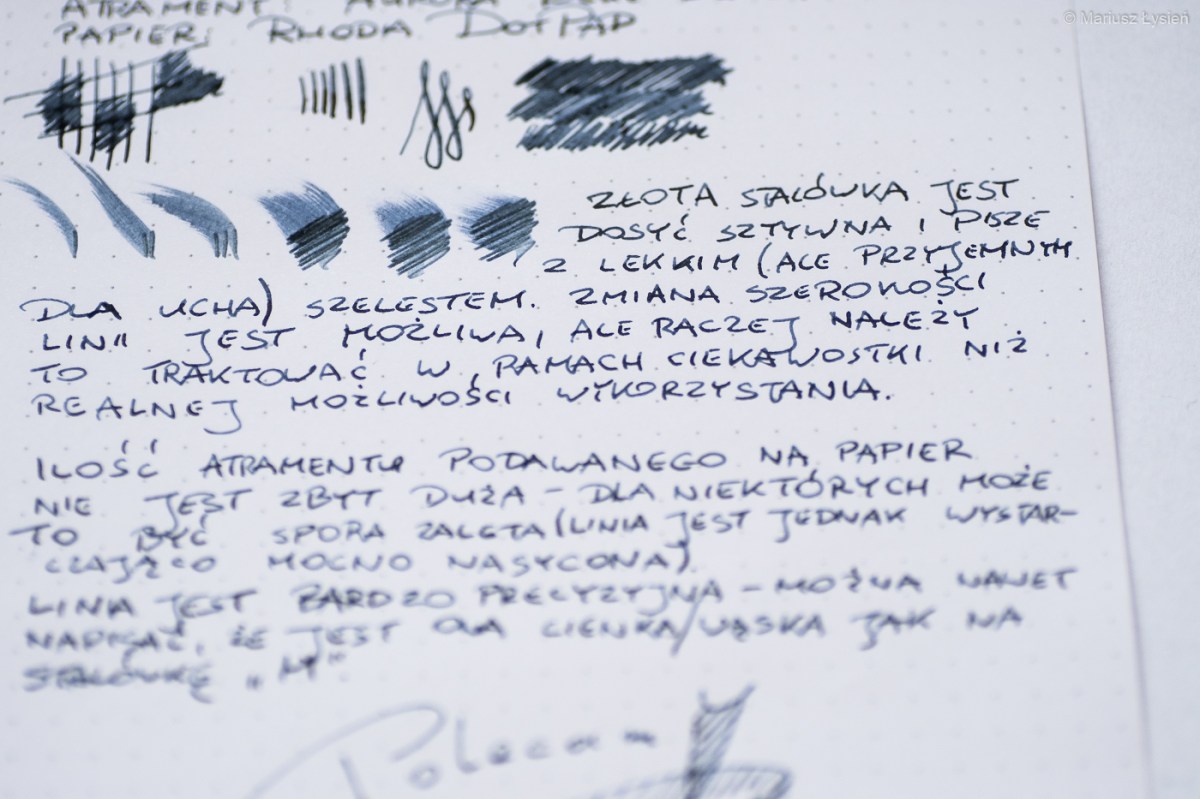 © Mariusz Łysień
ATRAMENT: AURORA
PAPIER: RHODA DOTPAD
ZŁOTA STALÓWKA JEST
DOSYĆ SZTYWNA I PISZE
Z LEKKIM (ALE PRZYJEMNYM
DLA UCHA) SZELESTEM. ZMIANA SZEROKOŚCI
LINII JEST MOŻLIWA, ALE RACZEJ NALEŻY
TO TRAKTOWAĆ W RAMACH CIEKAWOSTKI NIŻ
REALNEJ MOŻLIWOŚCI WYKORZYSTANIA.
ILOŚĆ ATRAMENTU PODAWANEGO NA PAPIER
NIE JEST ZBYT DUŻA - DLA NIEKTÓRYCH MOŻE
TO BYĆ SPORA ZALETA (LINIA JEST JEDNAK WYSTAR-
CZAJĄCO MOCNO NASYCONA).
LINIA JEST BARDZO PRECYZYJNA - MOŻNA NAWET
NAPISAĆ, ŻE JEST ONA CIENKA/WĄSKA JAK NA
STALÓWKĘ „M".
Polecam